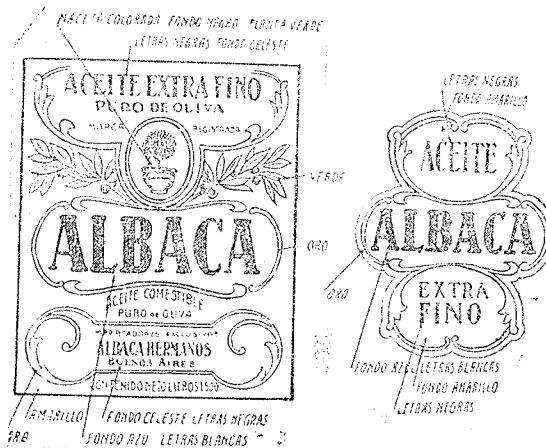 MACETA COLORADA FONDO NEGRO PLANTA VERDE
LETRAS NEGRAS FONDO CELESTE
ACEITE EXTRA FINO
PURO DE OLIVA
MARCA REGISTRADA
VERDE
ALBACA
ORO
ACEITE COMESTIBLE
PURO DE OLIVA
IMPORTADORES EXCLUSIVOS
ALBACA HERMANOS
BUENOS AIRES
CONTENIDO NETO LITROS 1.500
AMARILLO
FONDO CELESTE LETRAS NEGRAS
ORO
FONDO AZU LETRAS BLANCAS
LETRAS NEGRAS
FONDO AMARILLO
ACEITE
ALBACA
ORO
EXTRA
FINO
FONDO AZUL LETRAS BLANCAS
FONDO AMARILLO
LETRAS NEGRAS